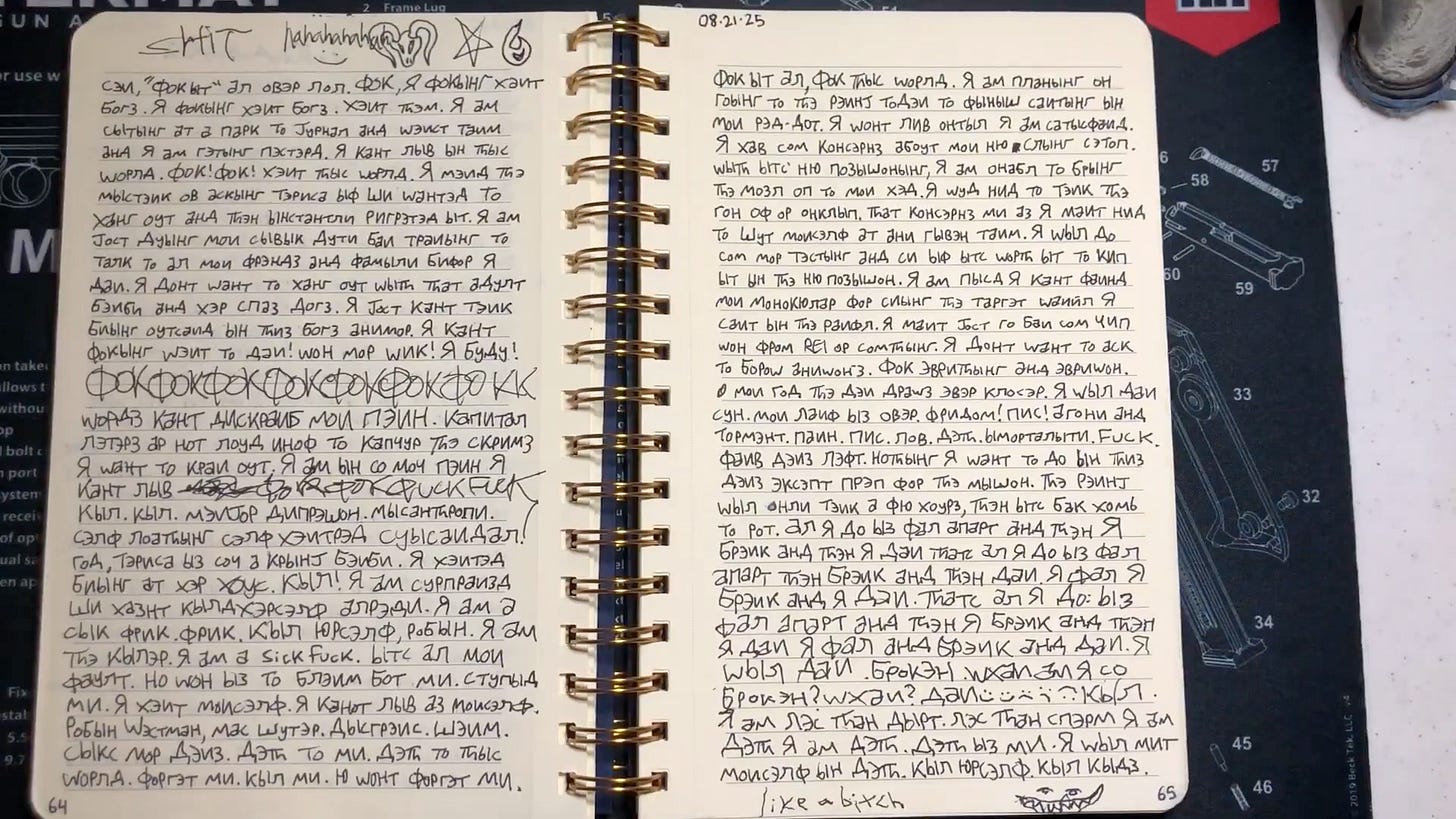 SHIT hahahahahah
сэи, "фок ыт" ал овэр лол. Фок, Я фокынг хэит
богз. Я фокынг хэит богз. Хэит тhэм. Я ам
сытынг ат а парк то Јурнал анд wэист таим
анд Я ам гэтынг пэстэрд. Я кант лыв ын тhыс
wорлд. Фок! Фок! Хэит тhыс wорлд. Я мэид тhэ
мыстэик ов аскынг Тэриса ыф ши wантэд то
ханг оут анд тhэн ынстантли ригрэтэд ыт. Я ам
Јост дуынг мои сывык дути баи траиынг то
талк то ал мои фрэндз анд фамыли бифор Я
даи. Я донт wант то ханг оут wытh тhат адулт
бэиби анд хэр спаз догз. Я Јост кант тэик
биынг оутсаид ын тhиз богз анимор. Я кант
фокынг wэит то даи! wон мор wик! Я буду!
ФОКФОКФОКФОКФОКФОКФОКК
wордз кант дискраиб мои пэин. Капитал
лэтэрз ар нот лоуд иноф то капчур тhэ скримз
Я wант то краи оут. Я ам ын со моч пэин Я
кант лыв ФОК FUCK FUCK
Кыл. Кыл. мэиЈор дипрэшон. мысантhропи.
сэлф лоатhынг сэлф хэитрэд суысаидал!
год, Тэриса ыз соч а крынЈ бэиби. Я хэитэд
биынг ат хэр хоус. Кыл! Я ам сурпраизд
ши хазнт кылд хэрсэлф алрэди. Я ам а
сык фрик. фрик. Кыл юрсэлф, Робын. Я ам
тhэ кылэр. Я ам а sick fuck. ытс ал мои
фаулт. Но wон ыз то блэим бот ми. ступыд
ми. Я хэит моисэлф. Я канот лыв аз моисэлф.
Робын Wэстман, мас шутэр. Дысгрэис. Шэим.
сыкс мор дэиз. Дэтh то ми. Дэтh то тhыс
wорлд. форгэт ми. Кыл ми. Ю wонт форгэт ми.
64
08.21.25
Фок ыт ал, фок тhыс wорлд. Я ам планынг он
гоынг то тhэ рэинЈ тодэи то фыныш саитынг ын
мои рэд-дот. Я wонт лив онтыл Я ам сатысфаид.
Я хав сом консэрнз абоут мои ню слынг сэтоп.
wытh ытс ню позышонынг, Я ам онабл то брынг
тhэ мозл оп то мои хэд. Я wуд нид то тэик тhэ
гон оф ор онклып. тhат консэрнз ми аз Я маит нид
то шут моисэлф ат ани гывэн таим. Я wыл до
сом мор тэстынг анд си ыф ытс wортh ыт то кип
ыт ын тhэ ню позышон. Я ам пысд Я кант фаинд
мои монокюлар фор сиынг тhэ таргэт wаиил Я
саит ын тhэ раифл. Я маит Јост го баи сом чип
wон фром REI ор сомтhынг. Я донт wант то аск
то бороw аниwонз. Фок эвритhынг анд эвриwон.
О мои год тhэ дэи драwз эвэр клосэр. Я wыл даи
сун. мои лаиф ыз овэр. фридом! Пис! агони анд
тормэнт. Паин. Пис. Лов. Дэтh. ыморталыти. FUCK.
фаив дэиз лэфт. Нотhынг Я wант то до ын тhиз
дэиз эксэпт прэп фор тhэ мышон. тhэ рэинЈ
wыл онли тэик а фю хоурз, тhэн ытс бак хомь
то рот. ал Я до ыз фал апарт анд тhэн Я
брэик анд тhэн Я даи тhатс ал Я до ыз фал
апарт тhэн брэик анд тhэн даи. Я фал Я
брэик анд Я даи. тhатс ал Я до: ыз
фал апарт анд тhэн Я брэик анд тhэн
Я даи Я фал анд брэик анд даи. Я
wыл даи. брокэн. wхаи ам Я со
брокэн? wхаи? даи Кыл.
Я ам лэс тhан дырт. лэс тhан спэрм Я ам
дэтh Я ам дэтh. Дэтh ыз ми. Я wыл мит
моисэлф ын дэтh. Кыл юрсэлф. Кыл кыдз.
like a bitch
65
2 Frame Lug
57
58
60
59
33
32
34
45
46
© 2019 Beck Tek, LLC v4